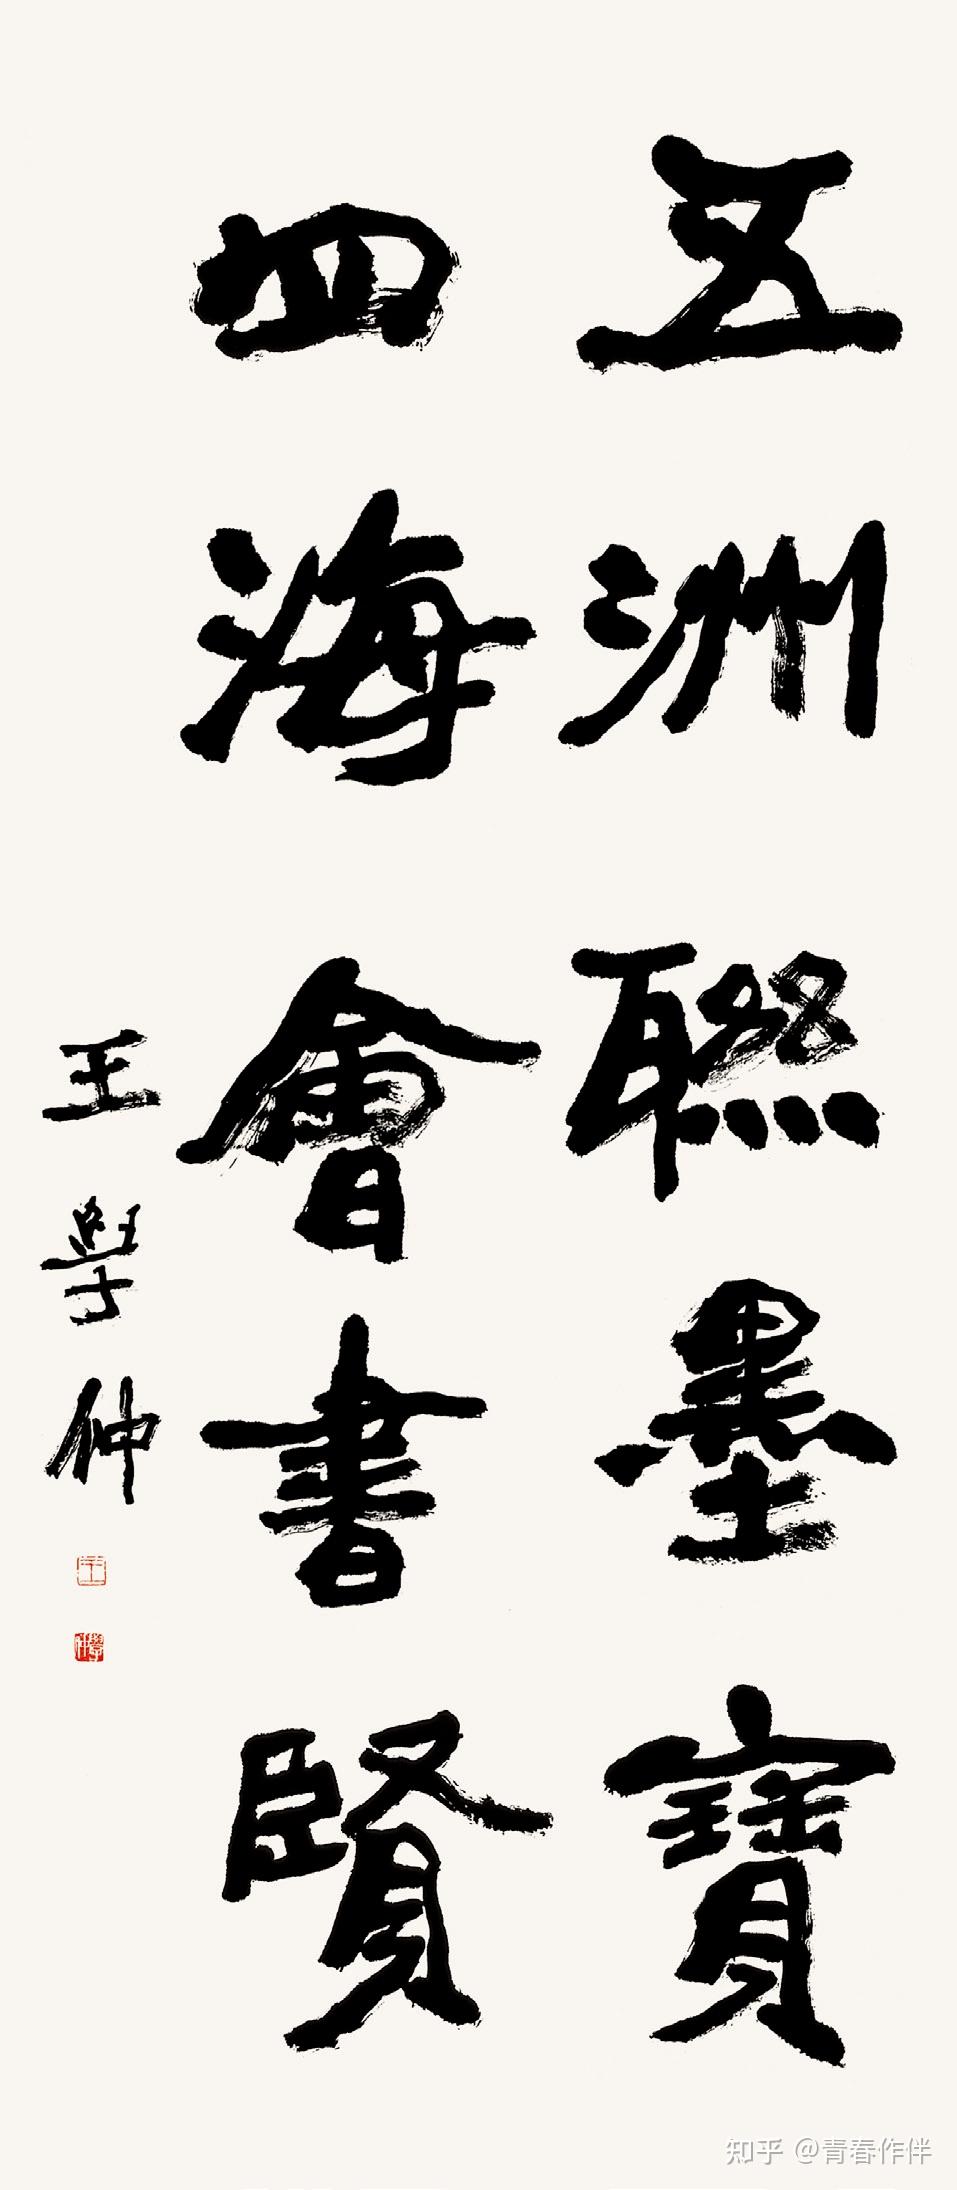 五洲聯墨寶
四海會書賢
王學仲
王
學仲
知乎 @青春作伴